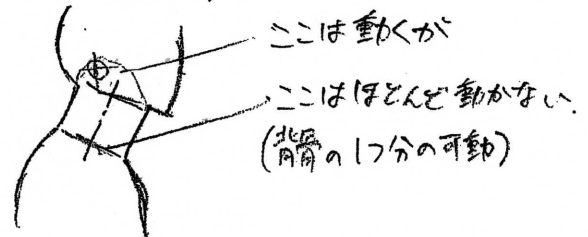 ここは動くが
ここはほとんど動かない.
(背骨の1つ分の可動)